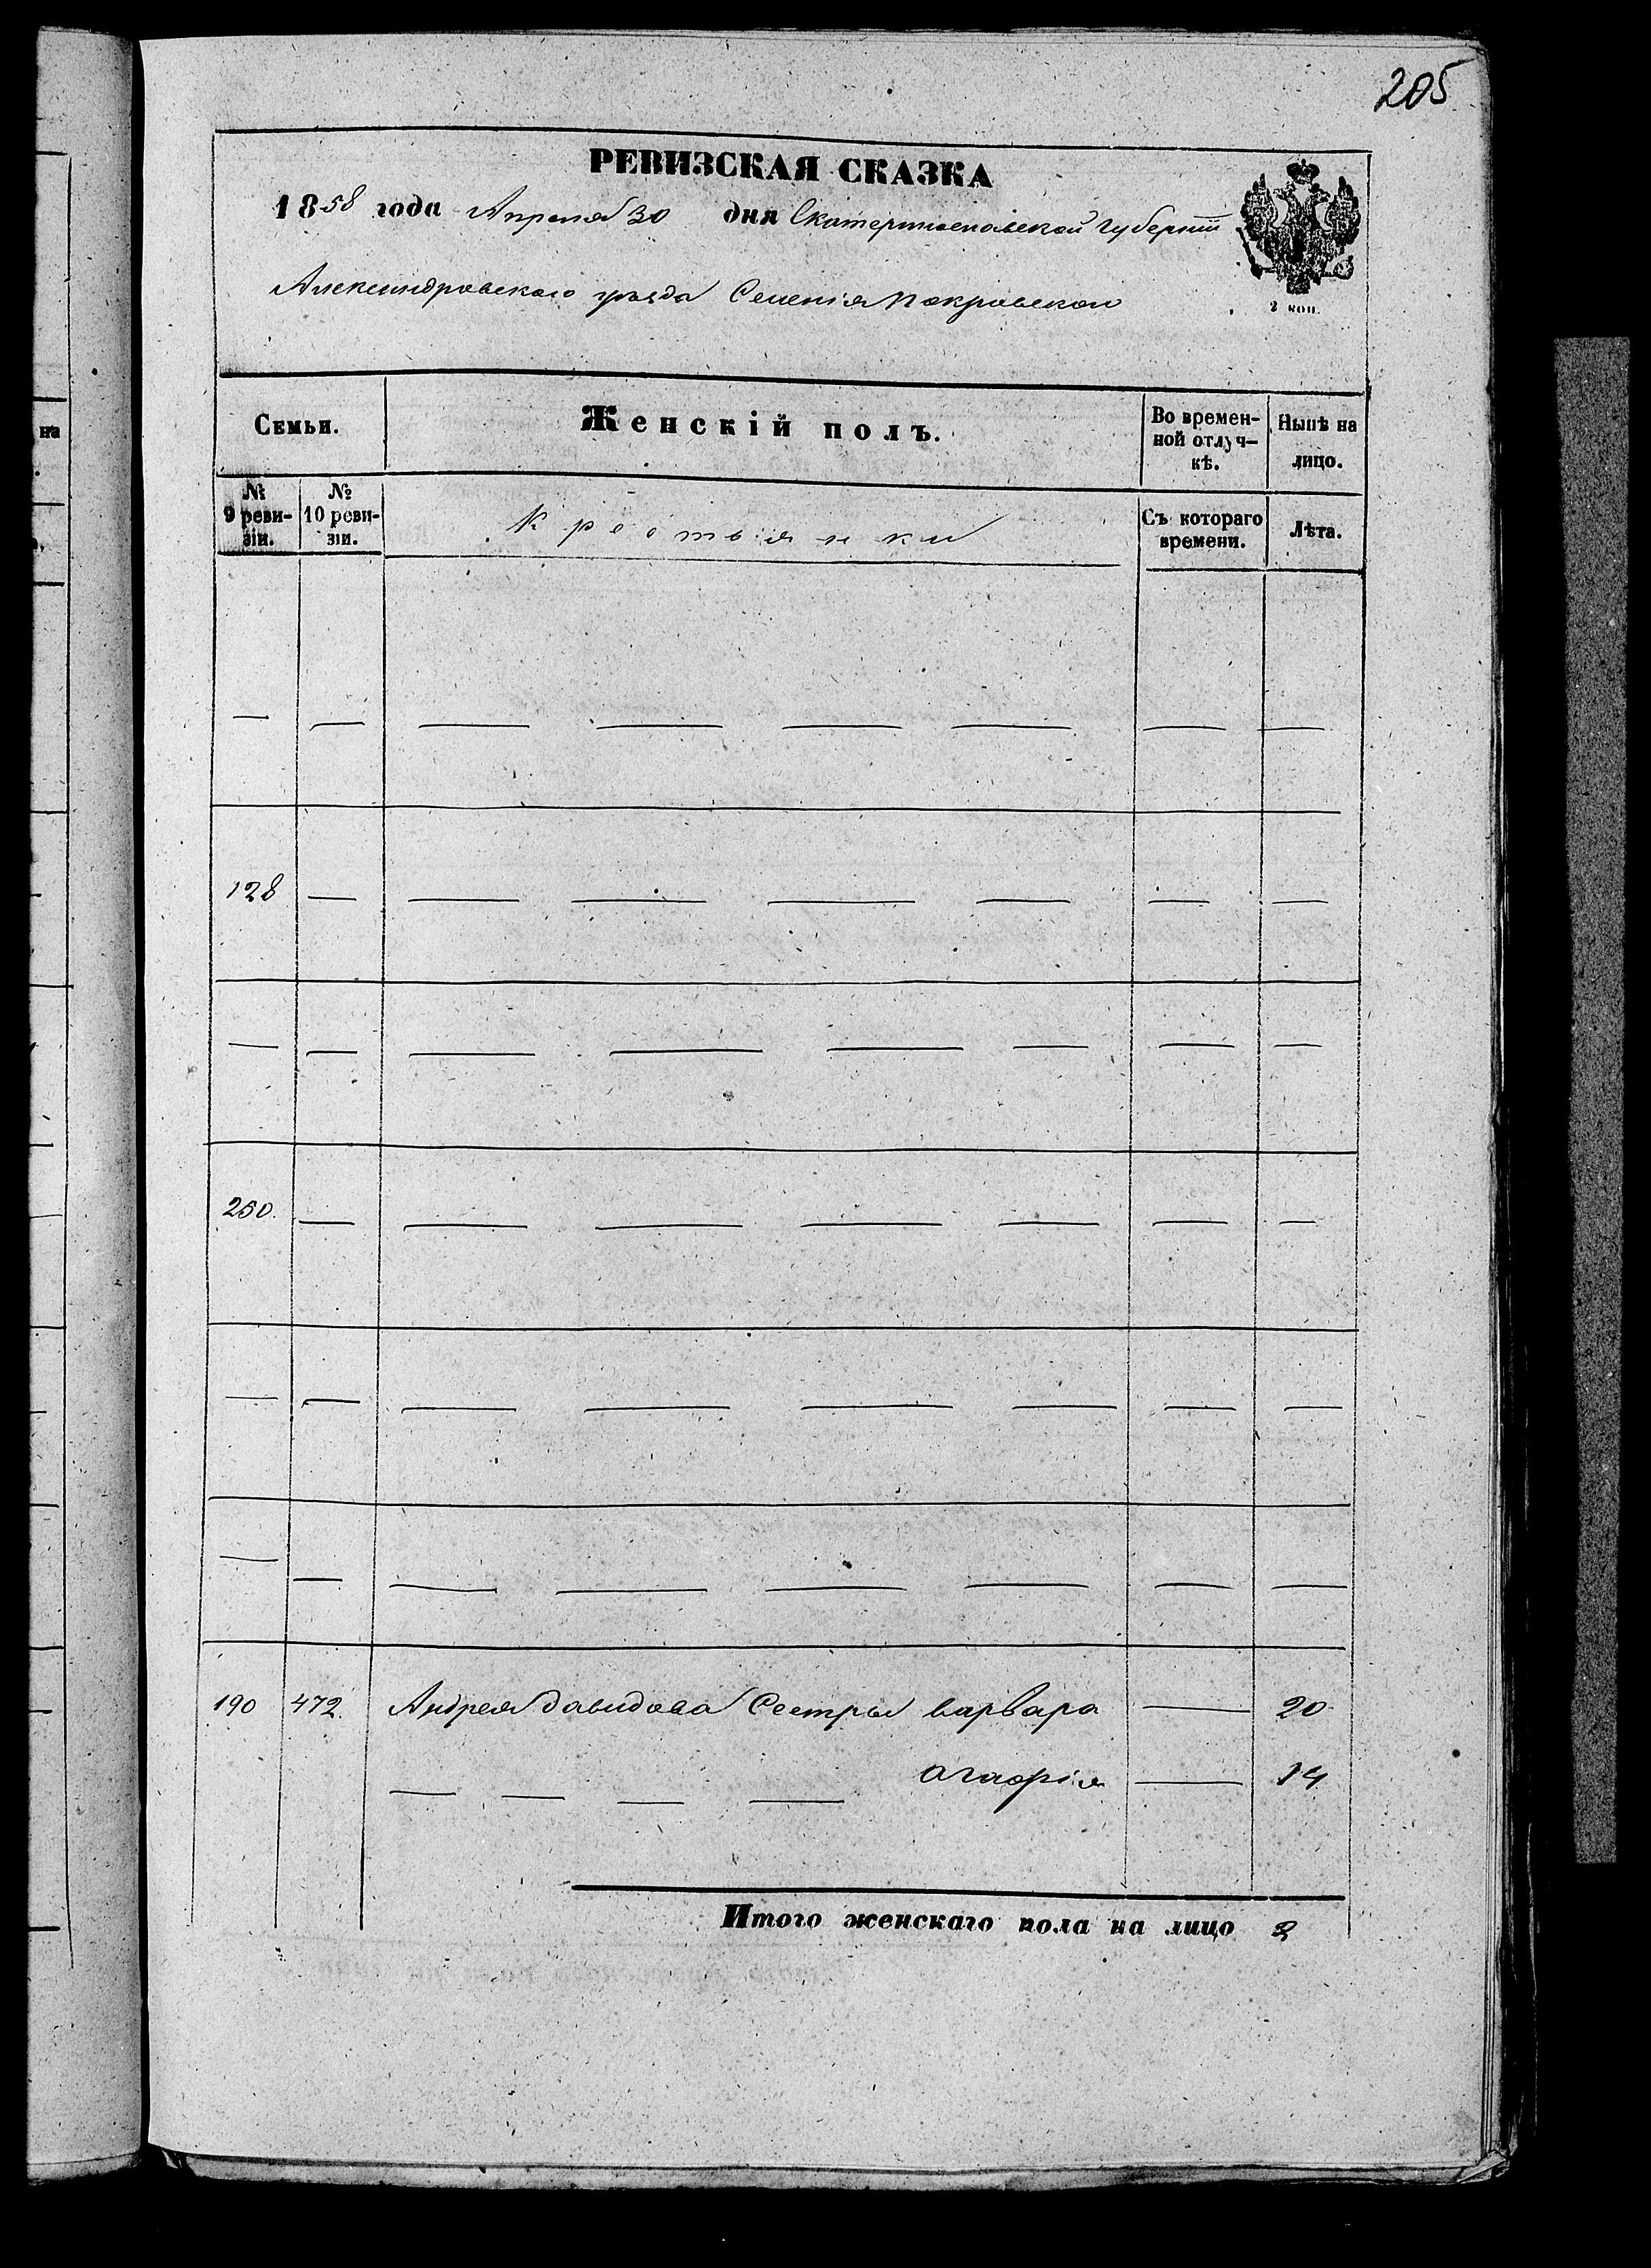 205
РЕВИЗСКАЯ СКАЗКА
1858 года Апреля 30 дня Екатеринославской губернiи
Александровскаго уѣзда Селенiя Покровскаго
2 коп.
Семьи. Женскiй полъ. Во времен-ной отлуч-кѣ. Нынѣ на лицо.
№ 9 реви-зiи. № 10 реви-зiи. Крестьянки Съ котораго времени. Лѣта.
— — — — — — — —
128 — — — — — — —
— — — — — — — —
250. — — — — — — —
— — — — — — — —
— — — — — — — —
190 472. Андрея Давидова Сестры варвара — 20
— — — — агафiя — 14
Итого женскаго пола на лицо 2
на